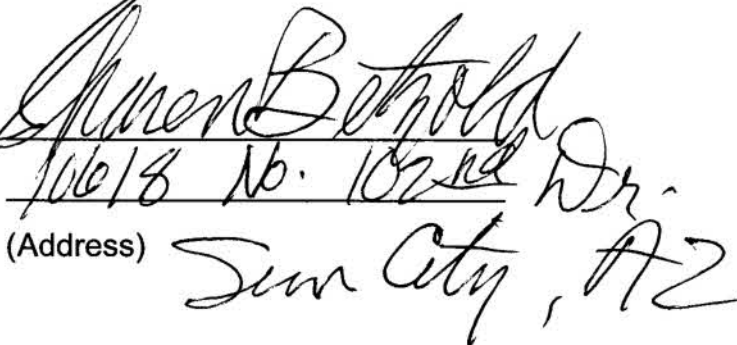 Sharen Betzold
10618 No. 102nd Dr.
(Address) Sun City, AZ